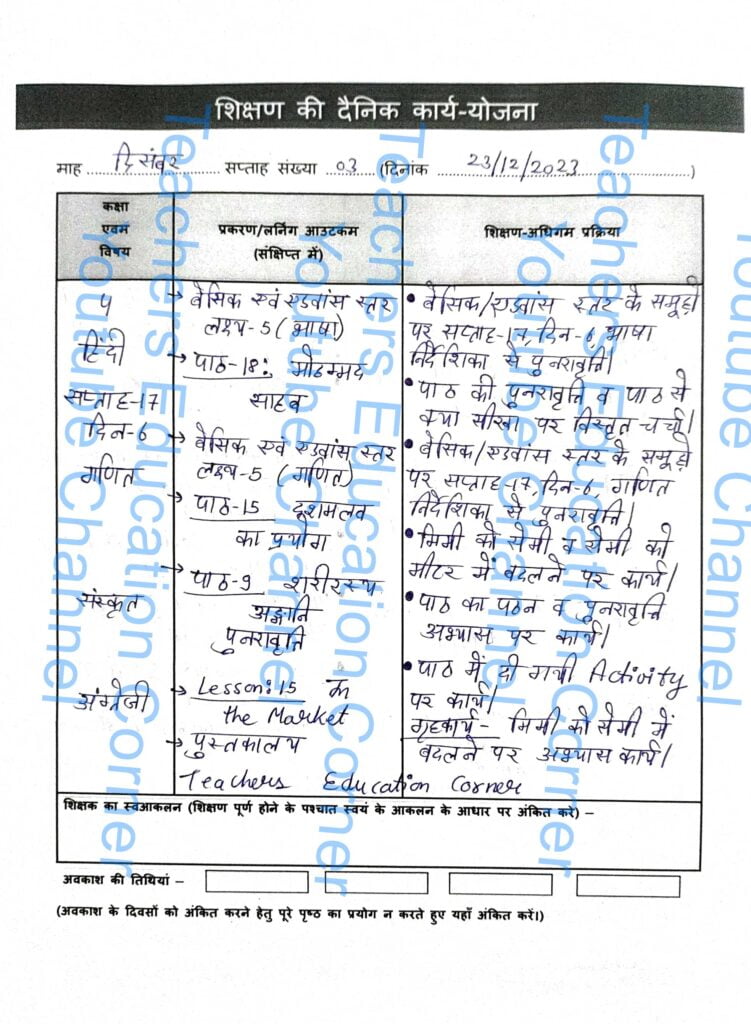 शिक्षण की दैनिक कार्य-योजना
माह दिसंबर सप्ताह संख्या 03 (दिनांक 23/12/2023)
कक्षा
एवम
विषय
प्रकरण/लर्निंग आउटकम
(संक्षिप्त में)
शिक्षण-अधिगम प्रक्रिया
५
हिंदी
सप्ताह-17
दिन-6
गणित
संस्कृत
अंग्रेजी
→ बेसिक एवं एडवांस स्तर
लक्ष्य-5 (भाषा)
→ पाठ-18: मोहम्मद
साहब
→ बेसिक एवं एडवांस स्तर
लक्ष्य-5 (गणित)
→ पाठ-15 दशमलव
का प्रयोग
→ पाठ-9 शरीरस्य
अङ्गानि
पुनरावृत्ति
→ Lesson:15
the Market
→ पुस्तकालय
Teachers Education Corner
• बेसिक/एडवांस स्तर के समूहों
पर सप्ताह-17, दिन-6, भाषा
निर्देशिका से पुनरावृत्ति।
• पाठ की पुनरावृत्ति व पाठ से
क्या सीखा पर विस्तृत चर्चा।
• बेसिक/एडवांस स्तर के समूहों
पर सप्ताह-17, दिन-6, गणित
निर्देशिका से पुनरावृत्ति।
• मिमी को सेमी व सेमी को
मीटर में बदलने पर कार्य।
• पाठ का पठन व पुनरावृत्ति
अभ्यास पर कार्य।
• पाठ में दी गयी Activity
पर कार्य।
गृहकार्य - मिमी को सेमी में
बदलने पर अभ्यास कार्य।
शिक्षक का स्वआकलन (शिक्षण पूर्ण होने के पश्चात स्वयं के आकलन के आधार पर अंकित करे) –
अवकाश की तिथियां –
(अवकाश के दिवसों को अंकित करने हेतु पूरे पृष्ठ का प्रयोग न करते हुए यहाँ अंकित करें।)
Teachers Education Corner
Youtube Channel
Teachers Education Corner
Youtube Channel
Teachers Education Corner
Youtube Channel